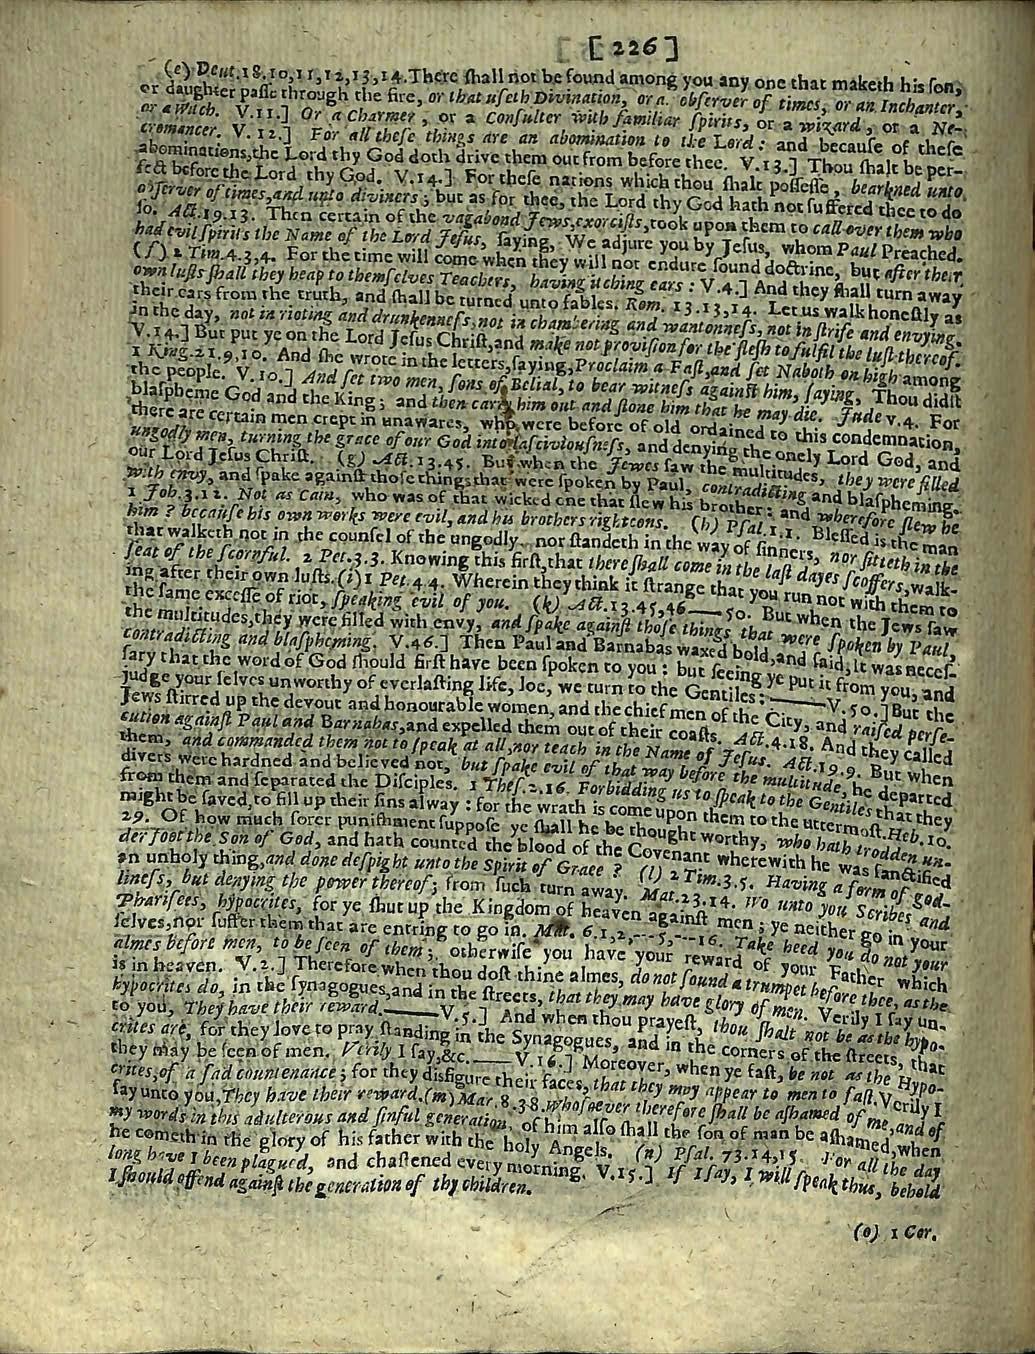 [ 226 ]
(e) Deut. 18. 10, 11, 12, 13, 14. There ſhall not be found among you any one that maketh his ſon,
or daughter paſſe through the fire, or that uſeth Divination, or a obſerver of times, or an Inchanter,
or a Witch. V. 11.] Or a Charmer, or a Conſulter with familiar ſpirits, or a wizard, or a Ne-
cromancer. V. 12.] For all theſe things are an abomination to the Lord: and becauſe of theſe
abominations, the Lord thy God doth drive them out from before thee. V. 13.] Thou ſhalt be per-
fect before the Lord thy God. V. 14.] For theſe nations which thou ſhalt poſſeſſe, hearkned unto
obſerver of times, and unto diviners; but as for thee, the Lord thy God hath not ſuffered thee to do
ſo. Act. 19. 13. Then certain of the vagabond Jews, exorciſts, took upon them to call over them who
had evil ſpirits the Name of the Lord Jeſus, ſaying, We adjure you by Jeſus, whom Paul Preached.
(f) 2 Tim. 4. 3, 4. For the time will come when they will not endure ſound doctrine, but after their
own luſts ſhall they heap to themſelves Teachers, having itching ears: V. 4.] And they ſhall turn away
their ears from the truth, and ſhall be turned unto fables. Rom. 13. 13, 14. Let us walk honeſtly as
in the day, not in rioting and drunkenneſs, not in chambering and wantonneſs, not in ſtrife and envying.
V. 14.] But put ye on the Lord Jeſus Chriſt, and make not proviſion for the fleſh to fulfil the luſt thereof.
1 King. 21. 9, 10. And ſhe wrote in the letters, ſaying, Proclaim a Faſt, and ſet Naboth on high among
the people. V. 10.] And ſet two men, ſons of Belial, to bear witneſs againſt him, ſaying, Thou didſt
blaſpheme God and the King; and then carry him out and ſtone him that he may die. Jude v. 4. For
there are certain men crept in unawares, who were before of old ordained to this condemnation,
ungodly men, turning the grace of our God into laſciviouſneſs, and denying the onely Lord God, and
our Lord Jeſus Chriſt. (g) Act. 13. 45. But when the Jewes ſaw the multitudes, they were filled
with envy, and ſpake againſt thoſe things that were ſpoken by Paul, contradicting and blaſpheming.
1 Joh. 3. 12. Not as Cain, who was of that wicked one that ſlew his brother: and wherefore ſlew he
him? becauſe his own works were evil, and his brothers righteous. (h) Pſal. 1. 1. Bleſſed is the man
that walketh not in the counſel of the ungodly, nor ſtandeth in the way of ſinners, nor ſitteth in the
ſeat of the ſcornful. 2 Pet. 3. 3. Knowing this firſt, that there ſhall come in the laſt dayes ſcoffers, walk-
ing after their own luſts. (i) 1 Pet. 4 4. Wherein they think it ſtrange that you run not with them to
the ſame exceſſe of riot, ſpeaking evil of you. (k) Act. 13. 45, 46——50. But when the Jews ſaw
the multitudes, they were filled with envy, and ſpake againſt thoſe things that were ſpoken by Paul,
contradicting and blaſpheming. V. 46.] Then Paul and Barnabas waxed bold, and ſaid, It was neceſ-
ſary that the word of God ſhould firſt have been ſpoken to you: but ſeeing ye put it from you, and
judge your ſelves unworthy of everlaſting life, loe, we turn to the Gentiles:——V. 50.] But the
Jews ſtirred up the devout and honourable women, and the chief men of the City, and raiſed perſe-
cution againſt Paul and Barnabas, and expelled them out of their coaſts. Act. 4. 18. And they called
them, and commanded them not to ſpeak at all, nor teach in the Name of Jeſus. Act. 19. 9. But when
divers were hardned and believed not, but ſpake evil of that way before the multitude, he departed
from them and ſeparated the Diſciples. 1 Theſ. 2. 16. Forbidding us to ſpeak to the Gentiles that they
might be ſaved, to fill up their ſins alway: for the wrath is come upon them to the uttermoſt. Heb. 10.
29. Of how much ſorer puniſhment ſuppoſe ye ſhall he be thought worthy, who hath trodden un-
der foot the Son of God, and hath counted the blood of the Covenant wherewith he was ſanctified
an unholy thing, and done deſpight unto the Spirit of Grace? (l) 2 Tim. 3. 5. Having a form of god-
lineſs, but denying the power thereof; from ſuch turn away. Mat. 23. 14. Wo unto you Scribes and
Phariſees, hypocrites, for ye ſhut up the Kingdom of heaven againſt men; ye neither go in your
ſelves, nor ſuffer them that are entring to go in. Mat. 6. 1, 2, --- 5, --- 16. Take heed you do not your
almes before men, to be ſeen of them; otherwiſe you have your reward of your Father which
is in heaven. V. 2.] Therefore when thou doſt thine almes, do not ſound a trumpet before thee, as the
hypocrites do, in the ſynagogues, and in the ſtreets, that they may have glory of men. Verily I ſay un-
to you, They have their reward.——V. 5.] And when thou prayeſt, thou ſhalt not be as the hypo-
crites are, for they love to pray ſtanding in the Synagogues, and in the corners of the ſtreets, that
they may be ſeen of men. Verily I ſay, &c.——V. 16.] Moreover, when ye faſt, be not as the Hypo-
crites, of a ſad countenance; for they disfigure their faces, that they may appear to men to faſt. Verily I
ſay unto you, They have their reward. (m) Mar. 8. 38. Whoſoever therefore ſhall be aſhamed of me, and of
my words in this adulterous and ſinful generation, of him alſo ſhall the ſon of man be aſhamed, when
he cometh in the glory of his father with the holy Angels. (n) Pſal. 73. 14, 15. For all the day
long have I been plagued, and chaſtened every morning. V. 15.] If I ſay, I will ſpeak thus, behold
I ſhould offend againſt the generation of thy children.
(o) 1 Cor.